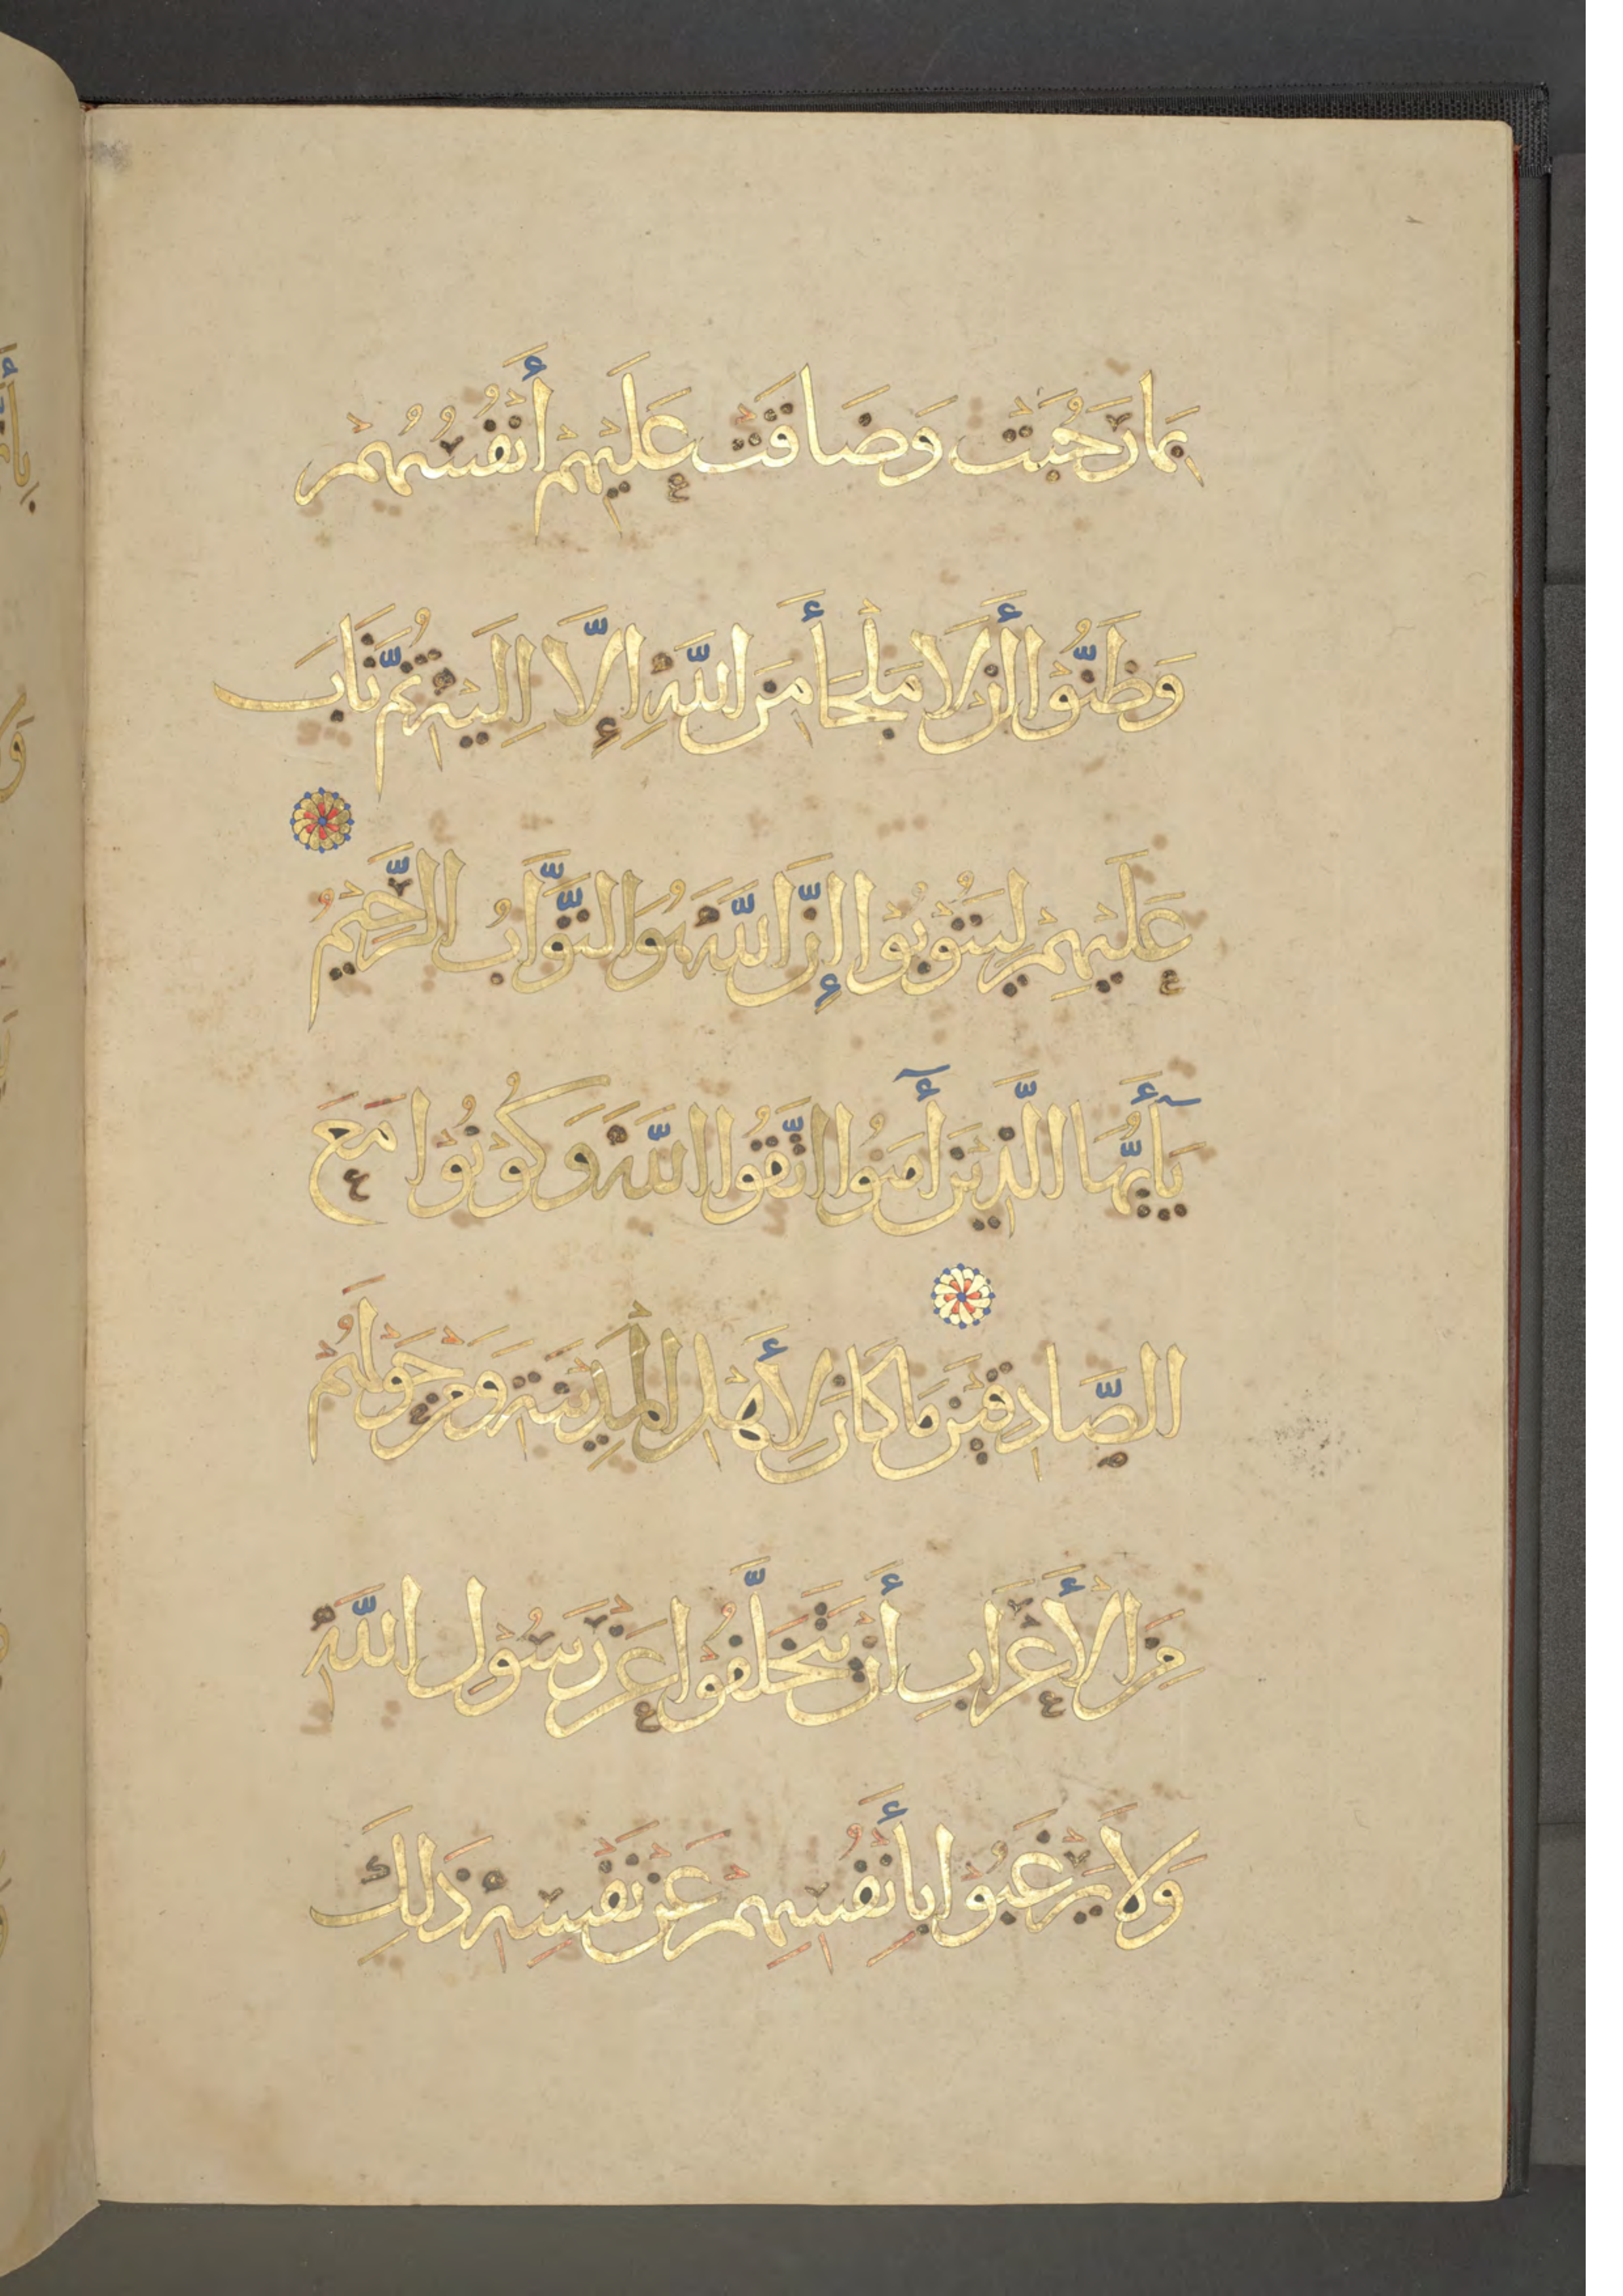 بِمَا رَحُبَتْ وَضَاقَتْ عَلَيْهِمْ أَنْفُسُهُمْ
وَظَنُّوْا أَنْ لَا مَلْجَأَ مِنَ اللَّهِ إِلَّا إِلَيْهِ ثُمَّ تَابَ
عَلَيْهِمْ لِيَتُوْبُوْا إِنَّ اللَّهَ هُوَ التَّوَّابُ الرَّحِيْمُ
يَا أَيُّهَا الَّذِيْنَ آمَنُوا اتَّقُوا اللَّهَ وَكُوْنُوْا مَعَ
الصَّادِقِيْنَ مَا كَانَ لِأَهْلِ الْمَدِيْنَةِ وَمَنْ حَوْلَهُمْ
مِنَ الْأَعْرَابِ أَنْ يَتَخَلَّفُوْا عَنْ رَسُوْلِ اللَّهِ
وَلَا يَرْغَبُوْا بِأَنْفُسِهِمْ عَنْ نَفْسِهِ ذَلِكَ